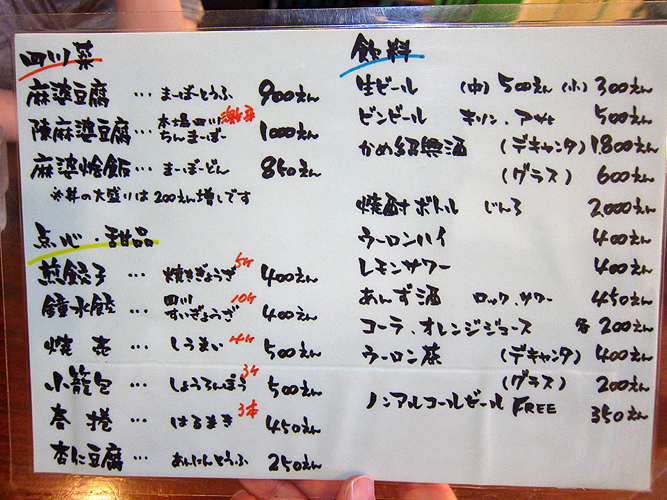 四川菜
麻婆豆腐 … まーぼーとうふ 900えん
陳麻婆豆腐 … 本場四川 ちんまーぼー 激辛 1000えん
麻婆烩飯 … まーぼーどん 850えん
※丼の大盛りは200えん増しです
点心・甜品
煎餃子 … 焼きぎょうざ 5ケ 400えん
鐘水餃 … 四川 すいぎょうざ 10ケ 400えん
焼売 … しうまい 4ケ 500えん
小籠包 … しょうろんぽう 3ケ 500えん
春捲 … はるまき 3本 450えん
杏仁豆腐 … あんにんとうふ 250えん
飲料
生ビール (中) 500えん (小) 300えん
ビンビール キリン、アサヒ 500えん
かめ紹興酒 (デキャンタ) 1800えん
(グラス) 600えん
焼酎ボトル じんろ 2000えん
ウーロンハイ 400えん
レモンサワー 400えん
あんず酒 ロック、サワー 450えん
コーラ、オレンジジュース 各200えん
ウーロン茶 (デキャンタ) 400えん
(グラス) 200えん
ノンアルコールビール FREE 350えん